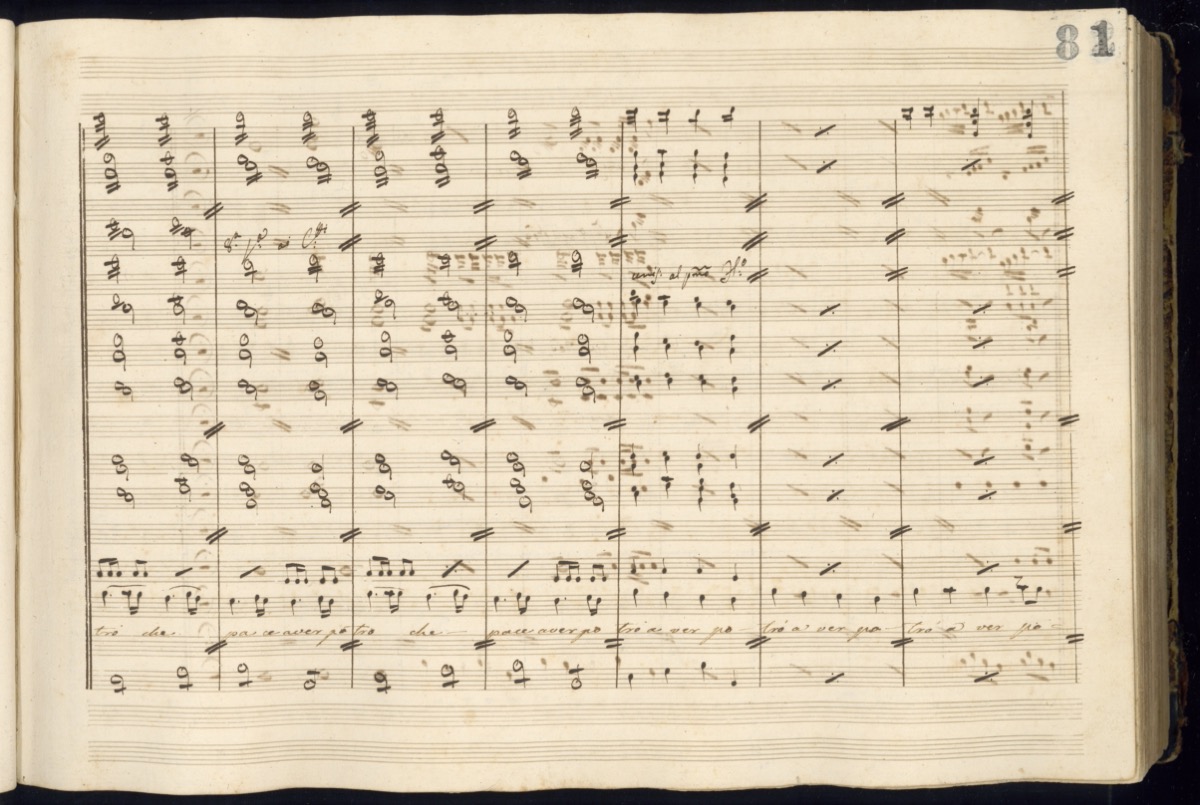 81
unis: al pmo
tró che pace aver po tro che pace aver po tró a ver po tró a ver po tró a ver po